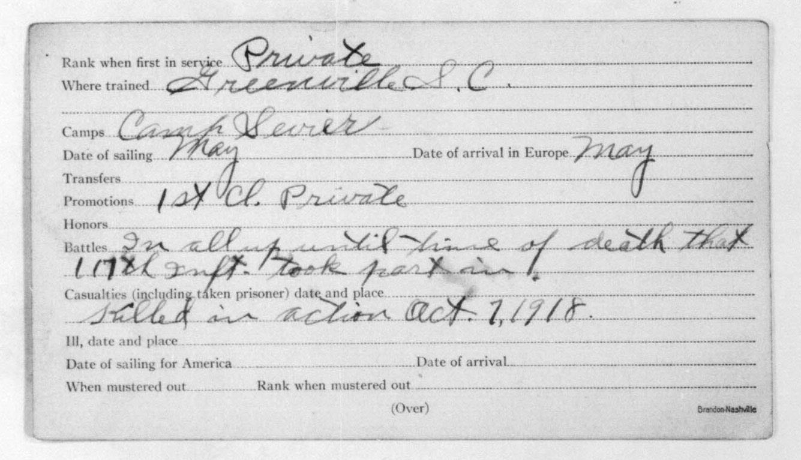 Rank when first in service Private
Where trained Greenville S. C.
Camps Camp Sevier
Date of sailing May Date of arrival in Europe May
Transfers
Promotions 1st Cl. Private
Honors
Battles In all up until time of death that
117th Inft. took part in.
Casualties (including taken prisoner) date and place
Killed in action Oct. 7, 1918.
Ill, date and place
Date of sailing for America Date of arrival
When mustered out Rank when mustered out
(Over) Brandon-Nashville